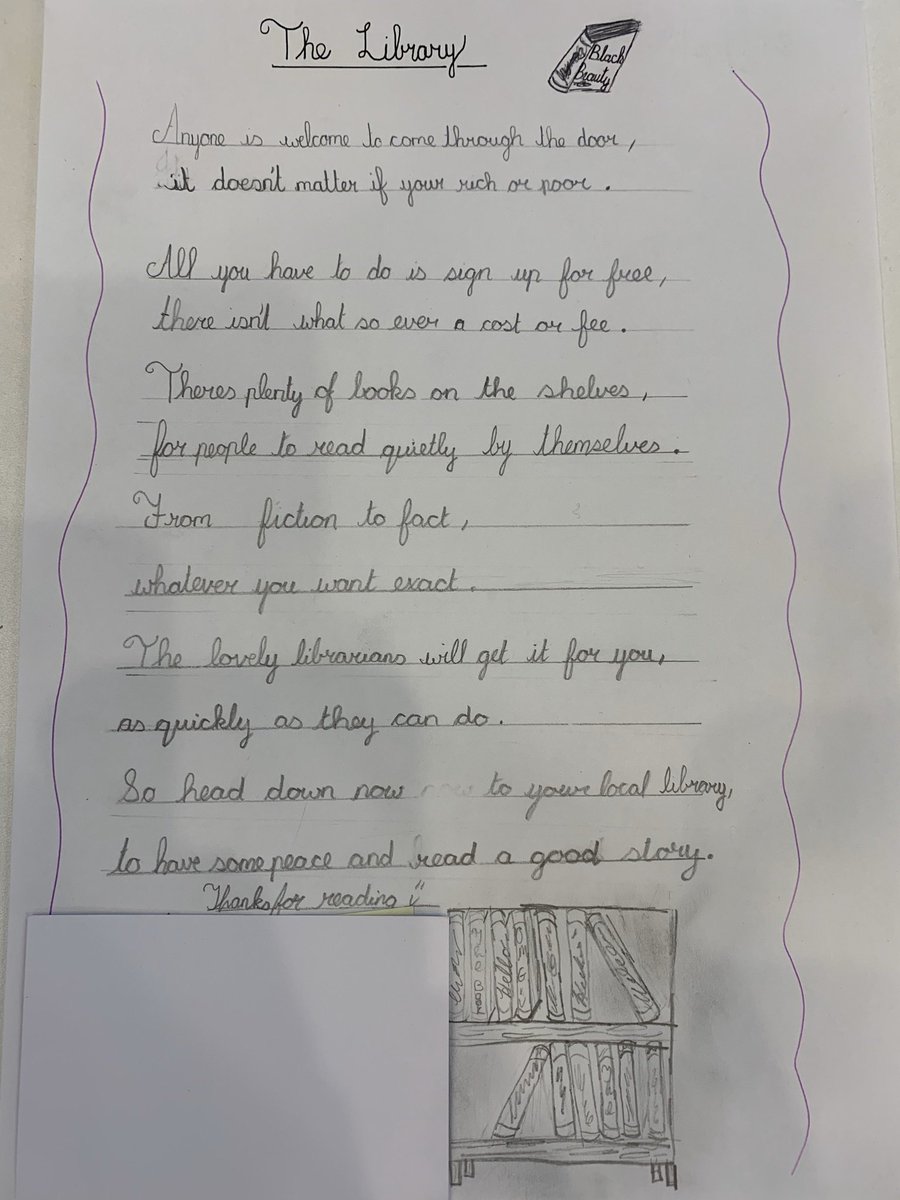 The Library
Black
Beauty
Anyone is welcome to come through the door,
it doesn't matter if your rich or poor.
All you have to do is sign up for free,
there isn't what so ever a cost or fee.
Theres plenty of books on the shelves,
for people to read quietly by themselves.
From fiction to fact,
whatever you want exact.
The lovely librarians will get it for you,
as quickly as they can do.
So head down now to your local library,
to have some peace and read a good story.
Thanks for reading
Hello